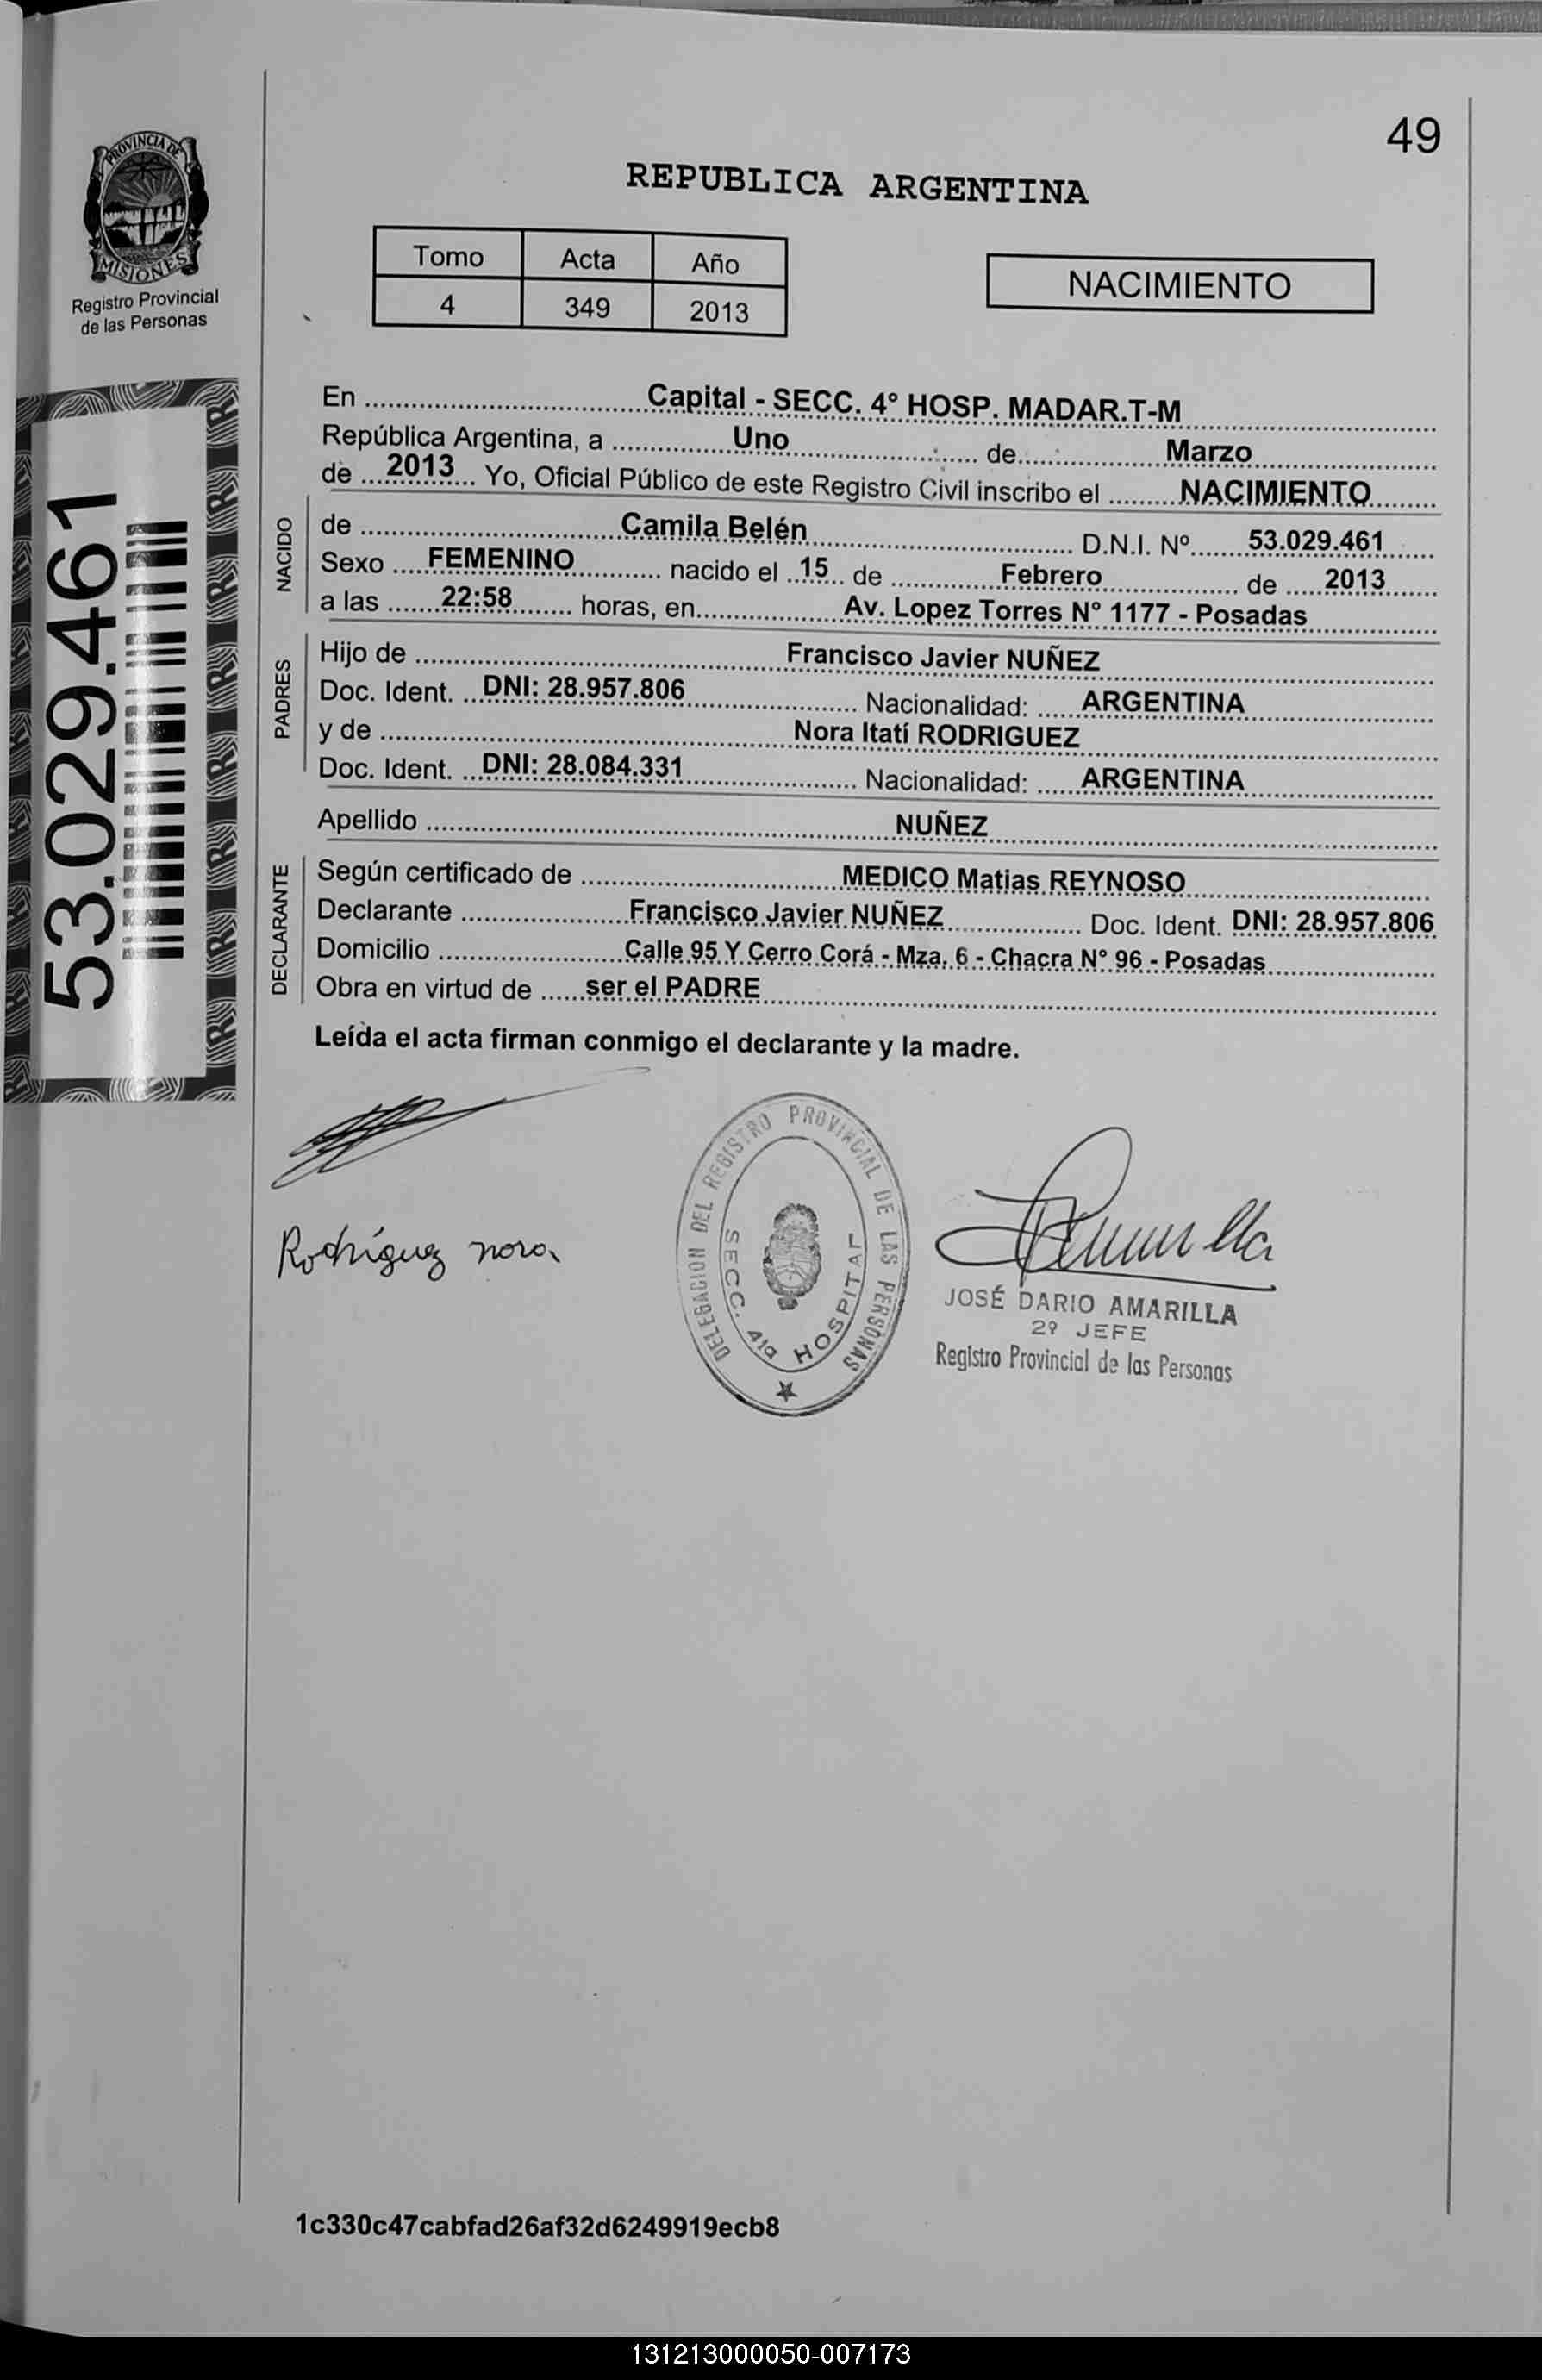 49
PROVINCIA DE
MISIONES
Registro Provincial
de las Personas
REPUBLICA ARGENTINA
Tomo Acta Año
4 349 2013
NACIMIENTO
53.029.461
En Capital - SECC. 4° HOSP. MADAR.T-M
República Argentina, a Uno de Marzo
de 2013 Yo, Oficial Público de este Registro Civil inscribo el NACIMIENTO
NACIDO
de Camila Belén D.N.I. Nº 53.029.461
Sexo FEMENINO nacido el 15 de Febrero de 2013
a las 22:58 horas, en Av. Lopez Torres N° 1177 - Posadas
PADRES
Hijo de Francisco Javier NUÑEZ
Doc. Ident. DNI: 28.957.806 Nacionalidad: ARGENTINA
y de Nora Itatí RODRIGUEZ
Doc. Ident. DNI: 28.084.331 Nacionalidad: ARGENTINA
Apellido NUÑEZ
DECLARANTE
Según certificado de MEDICO Matias REYNOSO
Declarante Francisco Javier NUÑEZ Doc. Ident. DNI: 28.957.806
Domicilio Calle 95 Y Cerro Corá - Mza. 6 - Chacra N° 96 - Posadas
Obra en virtud de ser el PADRE
Leída el acta firman conmigo el declarante y la madre.
Rodríguez nora
DELEGACION DEL REGISTRO PROVINCIAL DE LAS PERSONAS
SECC. 4ta HOSPITAL
JOSÉ DARIO AMARILLA
2º JEFE
Registro Provincial de las Personas
1c330c47cabfad26af32d6249919ecb8
131213000050-007173